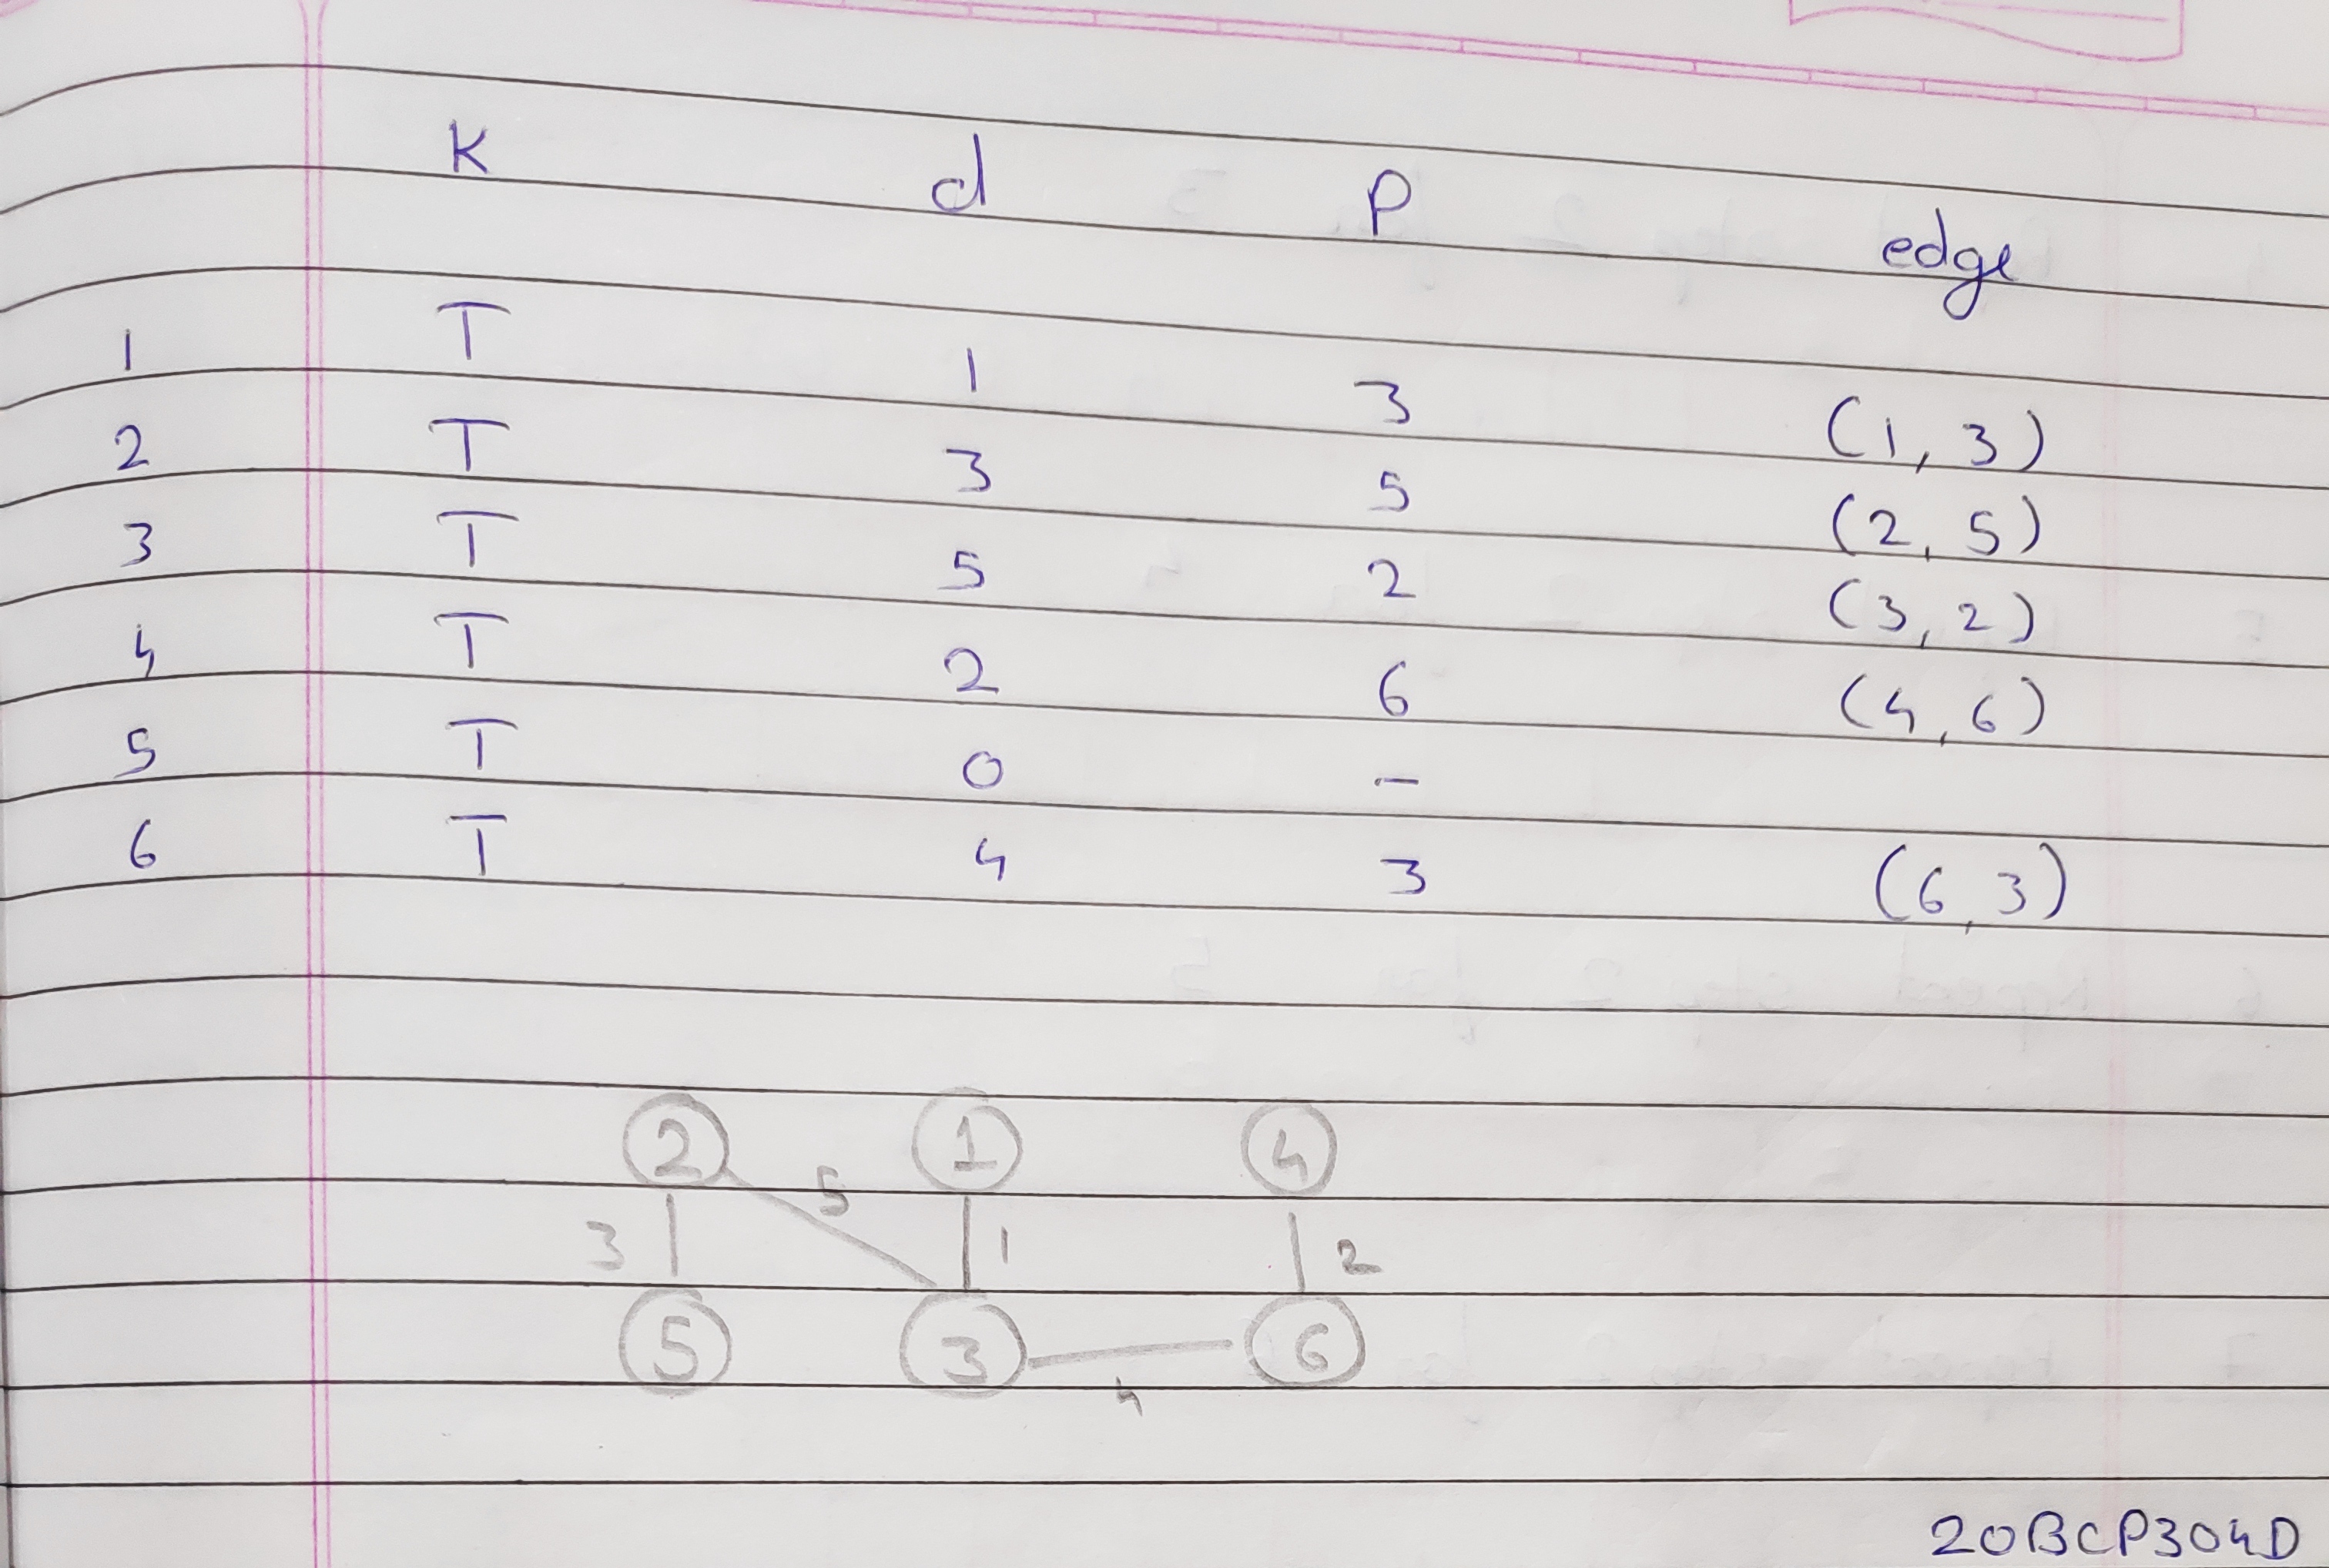 K d p edge
1 T 1 3 (1, 3)
2 T 3 5 (2, 5)
3 T 5 2 (3, 2)
4 T 2 6 (4, 6)
5 T 0 -
6 T 4 3 (6, 3)
2 1 4
5
3 1 2
5 3 6
4
20BCP304D